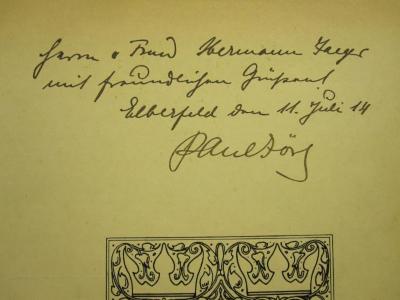 Herrn u Frau Hermann Jaeger
mit freundlichem Gruß
Elberfeld den 11. Juli 14
Paul